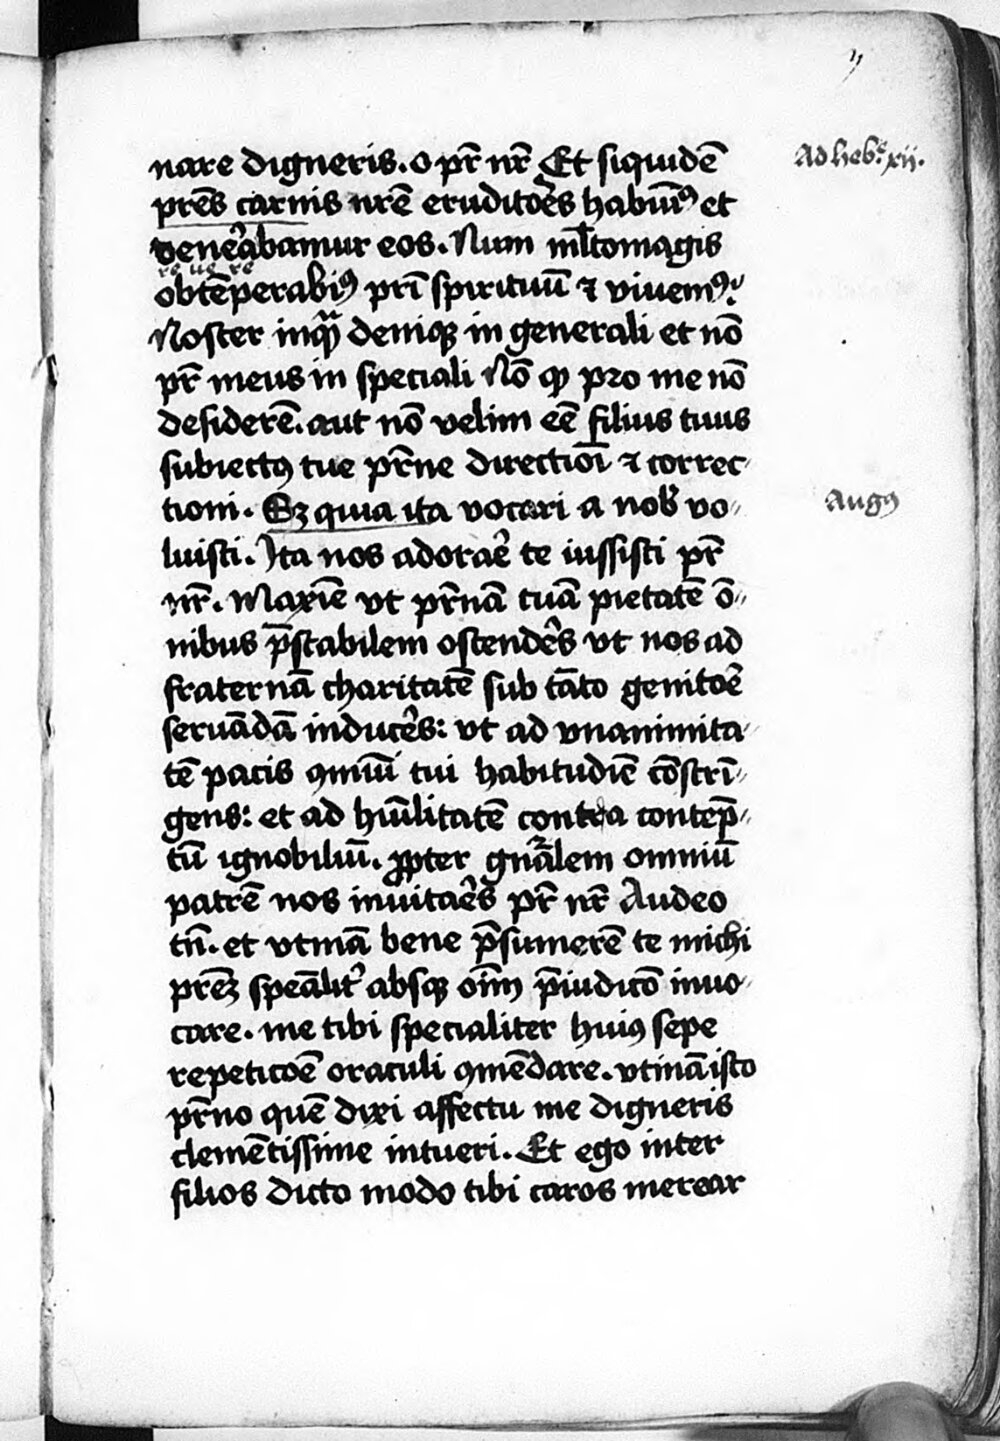 nare digneris. o pr̃ nr̃ Et siquidē Ad heb. xij.
prēs carnis nr̃e eruditoẽs habuim̃ꝰ et
veneẽabamur eos. Num ml̃tomagis
re ue re
obtēperabiꝰ prĩ spirituū ⁊ viuemꝰ:
Noster inqͣ deniqꝫ in generali et nō
pr̃ meus in speciali Nō ꝙ pro me nō
desiderē. aut nō velim eē filius tuus
subiectꝰ tue pr̃ne directiōi ⁊ correc-
tioni. Sꝫ quia ita vocari a nob̃ vo- Augꝰ
luisti. Ita nos adoraẽ te iussisti pr̃
nr̃. Maxīe vt pr̃nā tuā pietatē ō-
nibus p̄stabilem ostendẽs vt nos ad
fraternā charitatē sub tāto genitoẽ
seruādā inducẽs: vt ad vnanimita-
tē pacis ꝯmiũi tui habitudīe cōstrī-
gens: et ad hūilitatē contra contep̄-
tū ignobiliū. ꝓpter gnãlem omniū
patrē nos inuitaẽs pr̃ nr̃ Audeo
tñ. et vtinā bene p̄sumerē te michi
prēꝫ speāliẽ absqꝫ oīm p̄iudicō inuo-
care. me tibi specialiter huiꝰ sepe
repeticōē oraculi ꝯmēdare. vtinā isto
pr̃no quē dixi affectu me digneris
clemētissime intueri. Et ego inter
filios dicto modo tibi caros merear